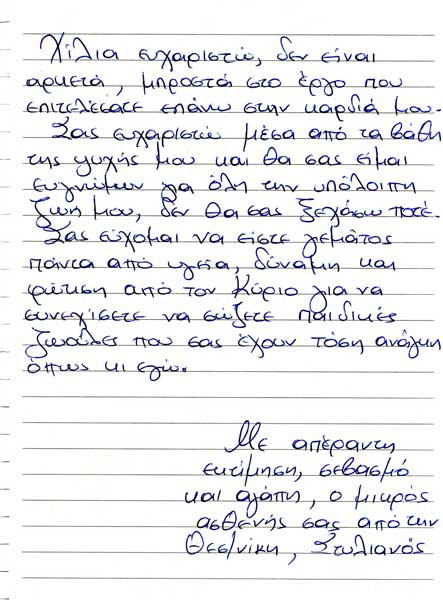 Χίλια ευχαριστώ, δεν είναι
αρκετά, μπροστά στο έργο που
επιτελέσατε επάνω στην καρδιά μου.
Σας ευχαριστώ μέσα από τα βάθη
της ψυχής μου και θα σας είμαι
ευγνώμων για όλη την υπόλοιπη
ζωή μου, δεν θα σας ξεχάσω ποτέ.
Σας εύχομαι να είστε γεμάτος
πάντα από υγεία, δύναμη και
φώτιση από τον Κύριο για να
συνεχίσετε να σώζετε παιδικές
ζωούλες που σας έχουν τόση ανάγκη
όπως κι εγώ.
Με απέραντη
εκτίμηση, σεβασμό
και αγάπη, ο μικρός
ασθενής σας από την
Θεσ/νίκη, Στυλιανός